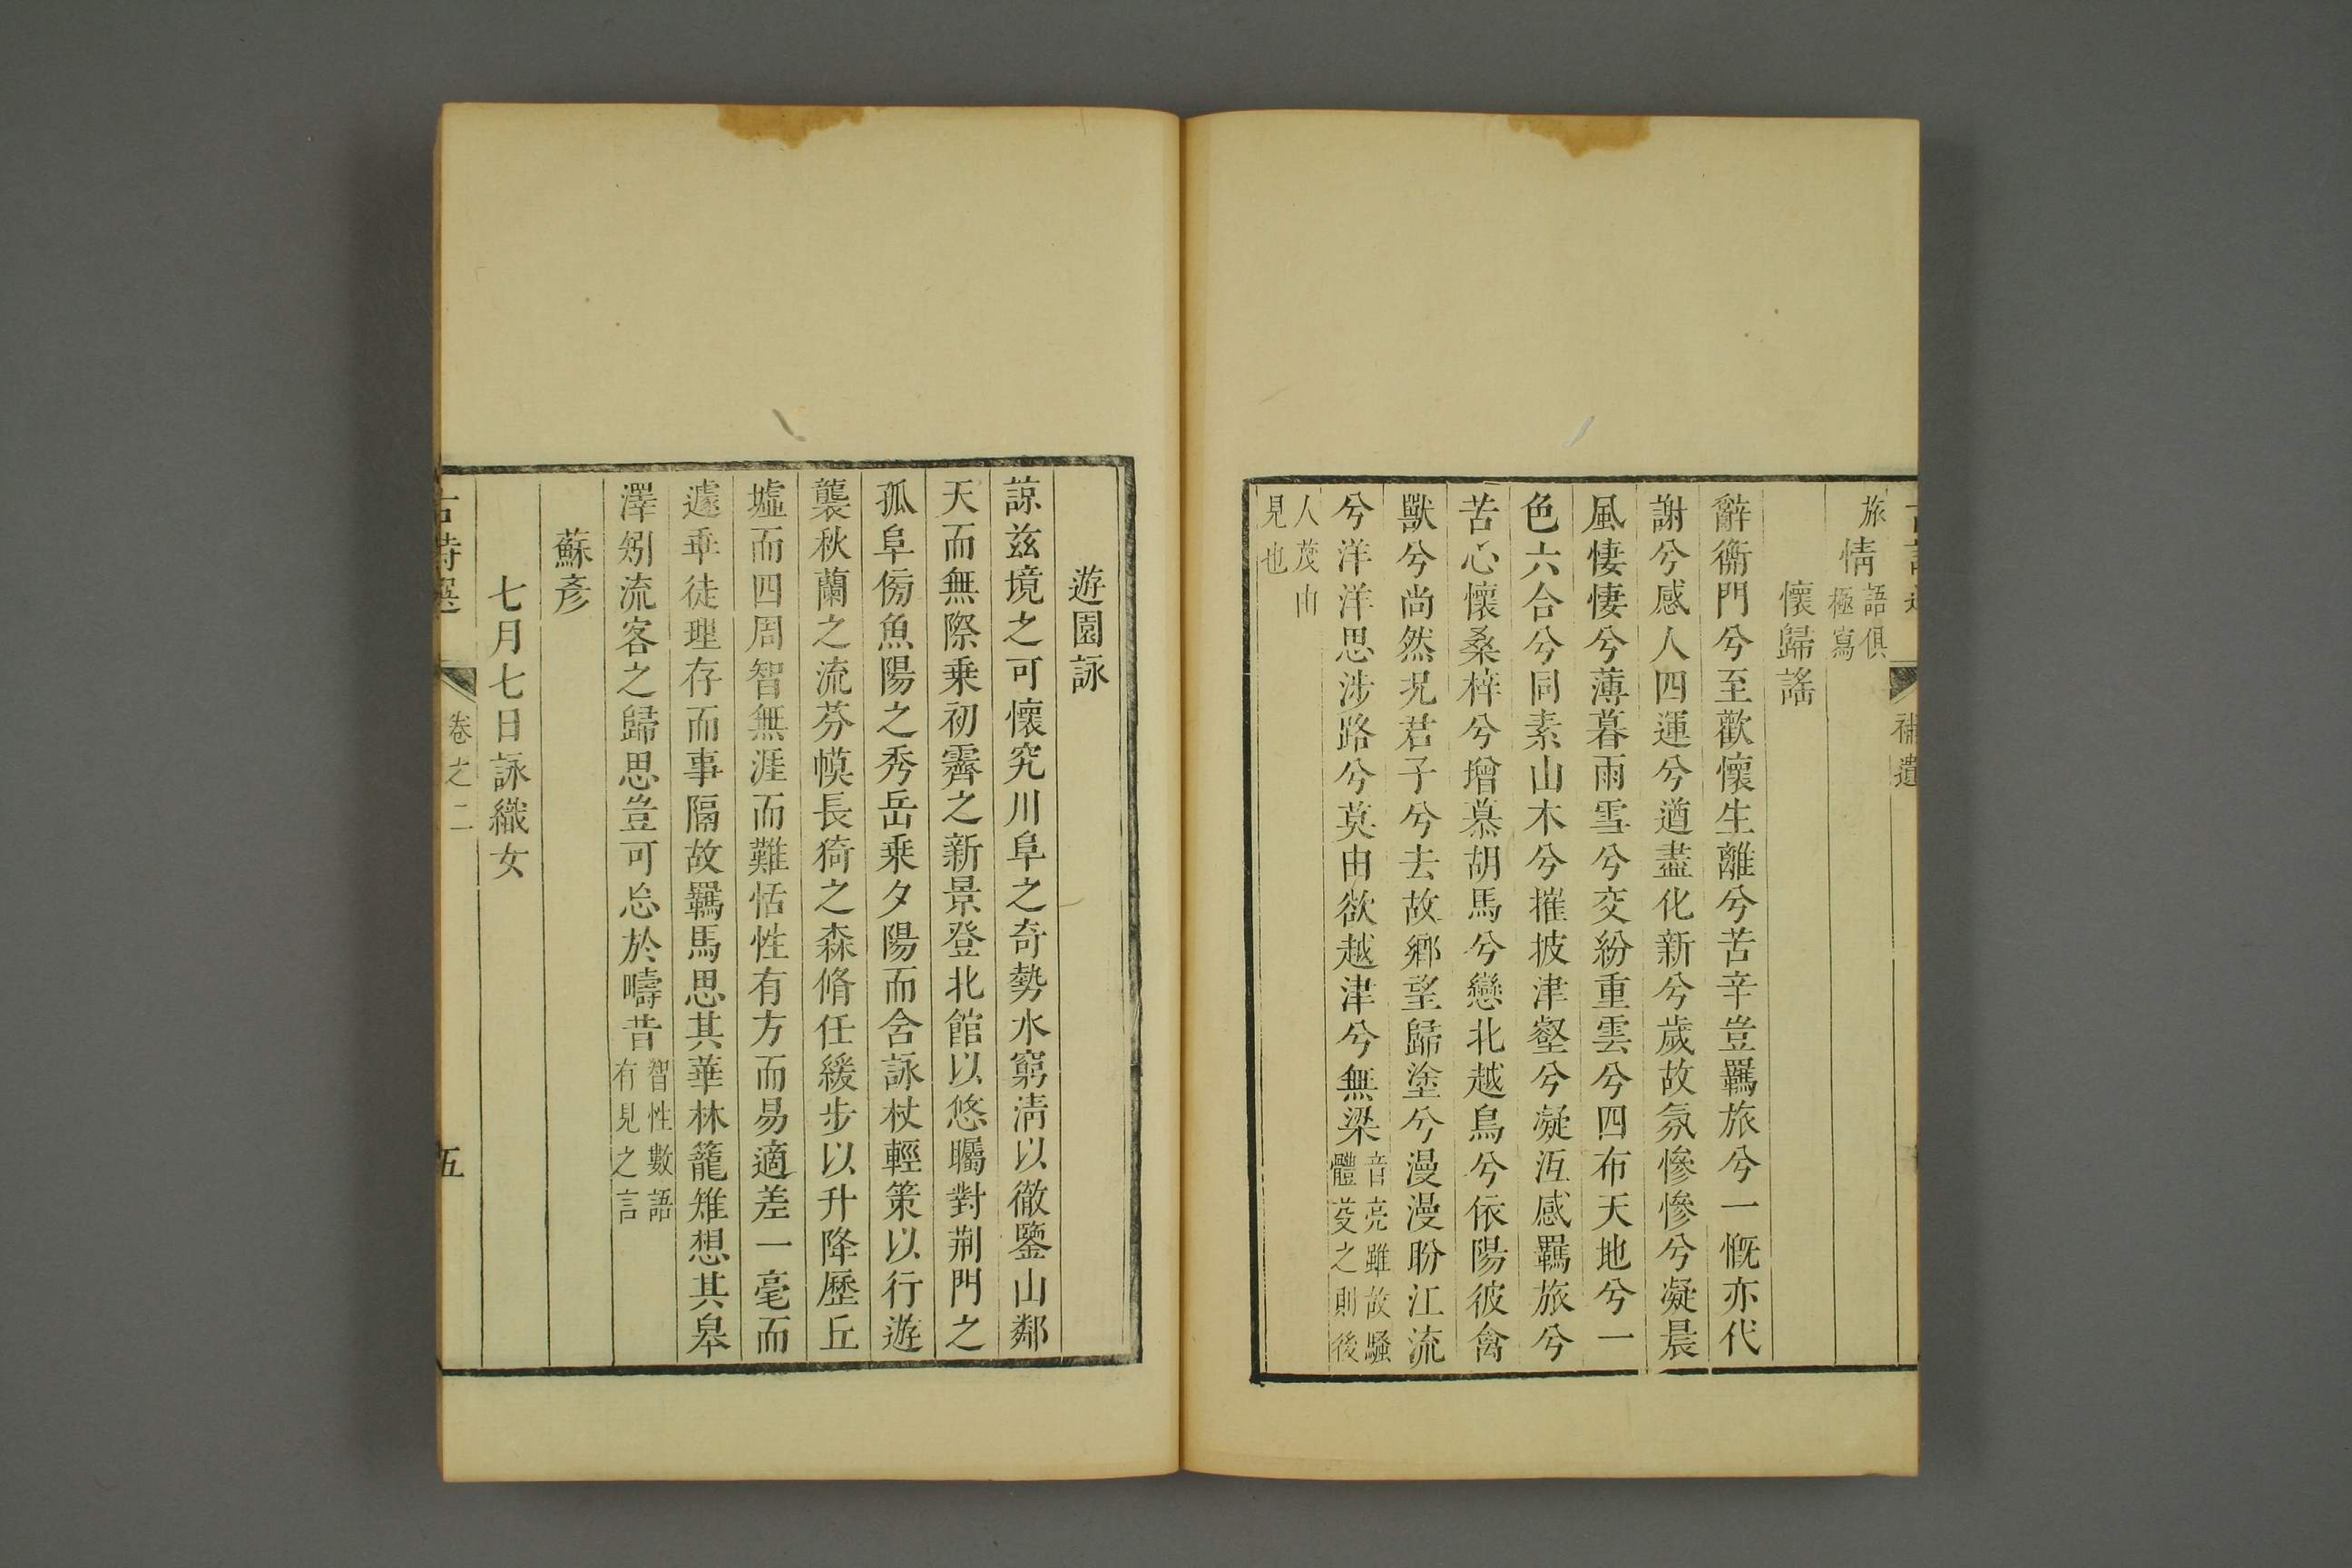 補遺
旅情語俱極寫
懷歸謠
辭衡門兮至歡懷生離兮苦辛豈羈旅兮一慨亦代
謝兮感人四運兮遒盡化新兮歲故氛慘慘兮凝晨
風悽悽兮薄暮雨雪兮交紛重雲兮四布天地兮一
色六合兮同素山木兮摧披津壑兮凝沍感羈旅兮
苦心懷桑梓兮增慕胡馬兮戀北越鳥兮依陽彼禽
獸兮尚然況君子兮去故鄉望歸塗兮漫漫盼江流
兮洋洋思涉路兮莫由欲越津兮無梁音亮雖故騷體茇之則後
人茂山見也
遊園詠
諒玆境之可懷究川阜之奇勢水窮淸以徹鑒山鄰
天而無際乗初霽之新景登北館以悠矚對荆門之
孤阜傍魚陽之秀岳乗夕陽而含詠杖輕策以行遊
襲秋蘭之流芬幙長猗之森脩任緩步以升降歷丘
墟而四周智無涯而難恬性有方而易適差一毫而
遽乖徒理存而事隔故羈馬思其華林籠雉想其皐
澤矧流客之歸思豈可忘於疇昔智性數語有見之言
蘇彥
七月七日詠織女
古詩選 卷之二 五